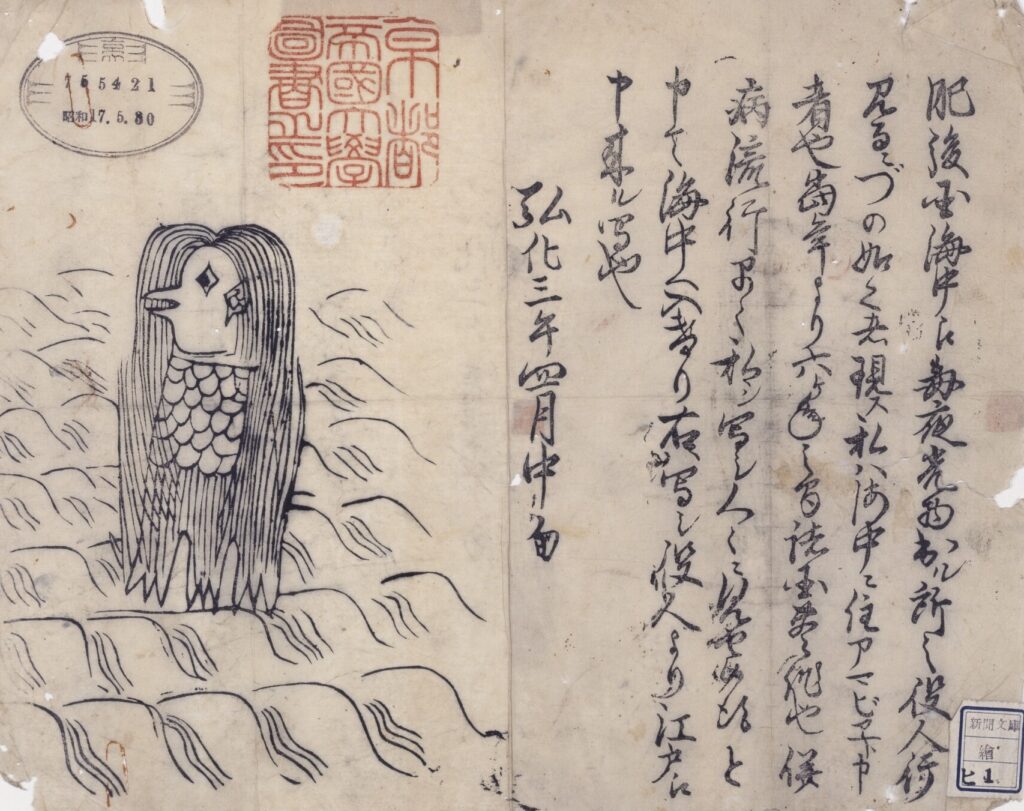 肥後国海中江毎夜光物出ル所之役人行
見るニづの如く者現ス私ハ海中ニ住アマビヱト申
者也當年より六ヶ年之間諸国豊作也併
病流行早々私シ写シ人々ニ見せ候得と
申て海中へ入けり右写シ役人より江戸江
申来ル写也
弘化三年四月中旬
京都
帝國大學
圖書之印
京
昭和17.5.30
新聞文庫
繪
ヒ1